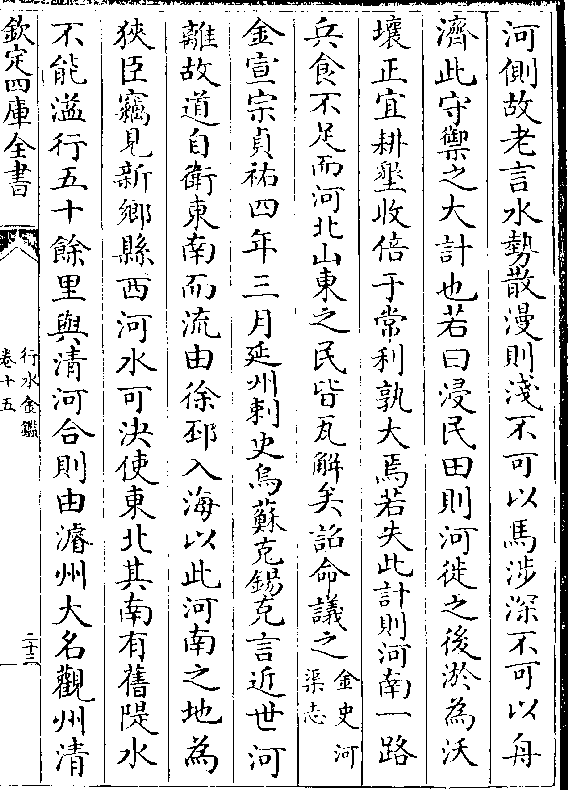 河側故老言水勢散漫則淺不可以馬涉深不可以舟
濟此守禦之大計也若曰浸民田則河徙之後淤為沃
壤正宜耕墾收倍于常利孰大焉若失此計則河南一路
兵食不足而河北山東之民皆瓦解矣詔命議之金史河渠志
金宣宗貞祐四年三月延州刺史烏蘇克錫克言近世河
離故道自衛東南而流由徐邳入海以此河南之地為
狹臣竊見新鄉縣西河水可決使東北其南有舊隄水
不能溢行五十餘里與清河合則由濬州大名觀州清
欽定四庫全書
行水金鑑
卷十五
二十三